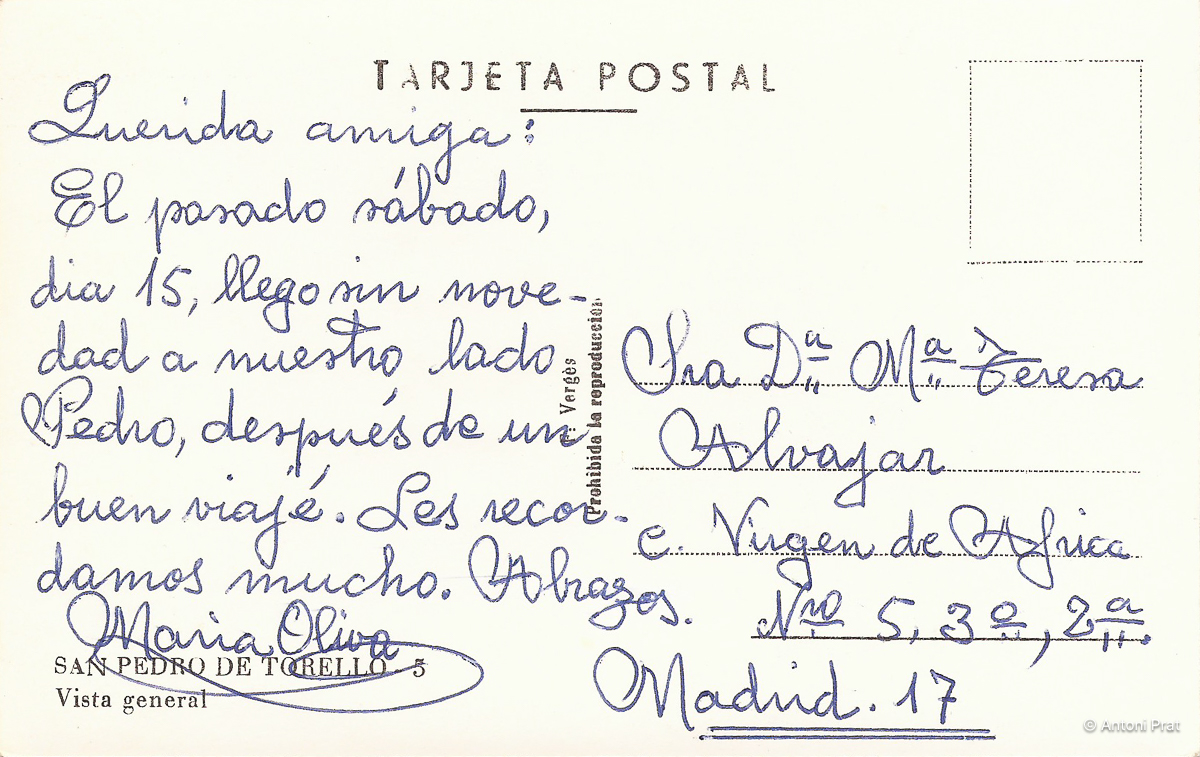 TARJETA POSTAL
Querida amiga:
El pasado sábado,
dia 15, llego sin nove-
dad a nuestro lado
Pedro, después de un
buen viajé. Les recor-
damos mucho. Abrazos.
Maria Oliva
SAN PEDRO DE TORELLO - 5
Vista general
Vergès
Prohibida la reproduccion
Sra Dª Mª Teresa
Alvajar
c. Virgen de Africa
Nro 5, 3º, 2ª.
Madrid. 17
© Antoni Prat